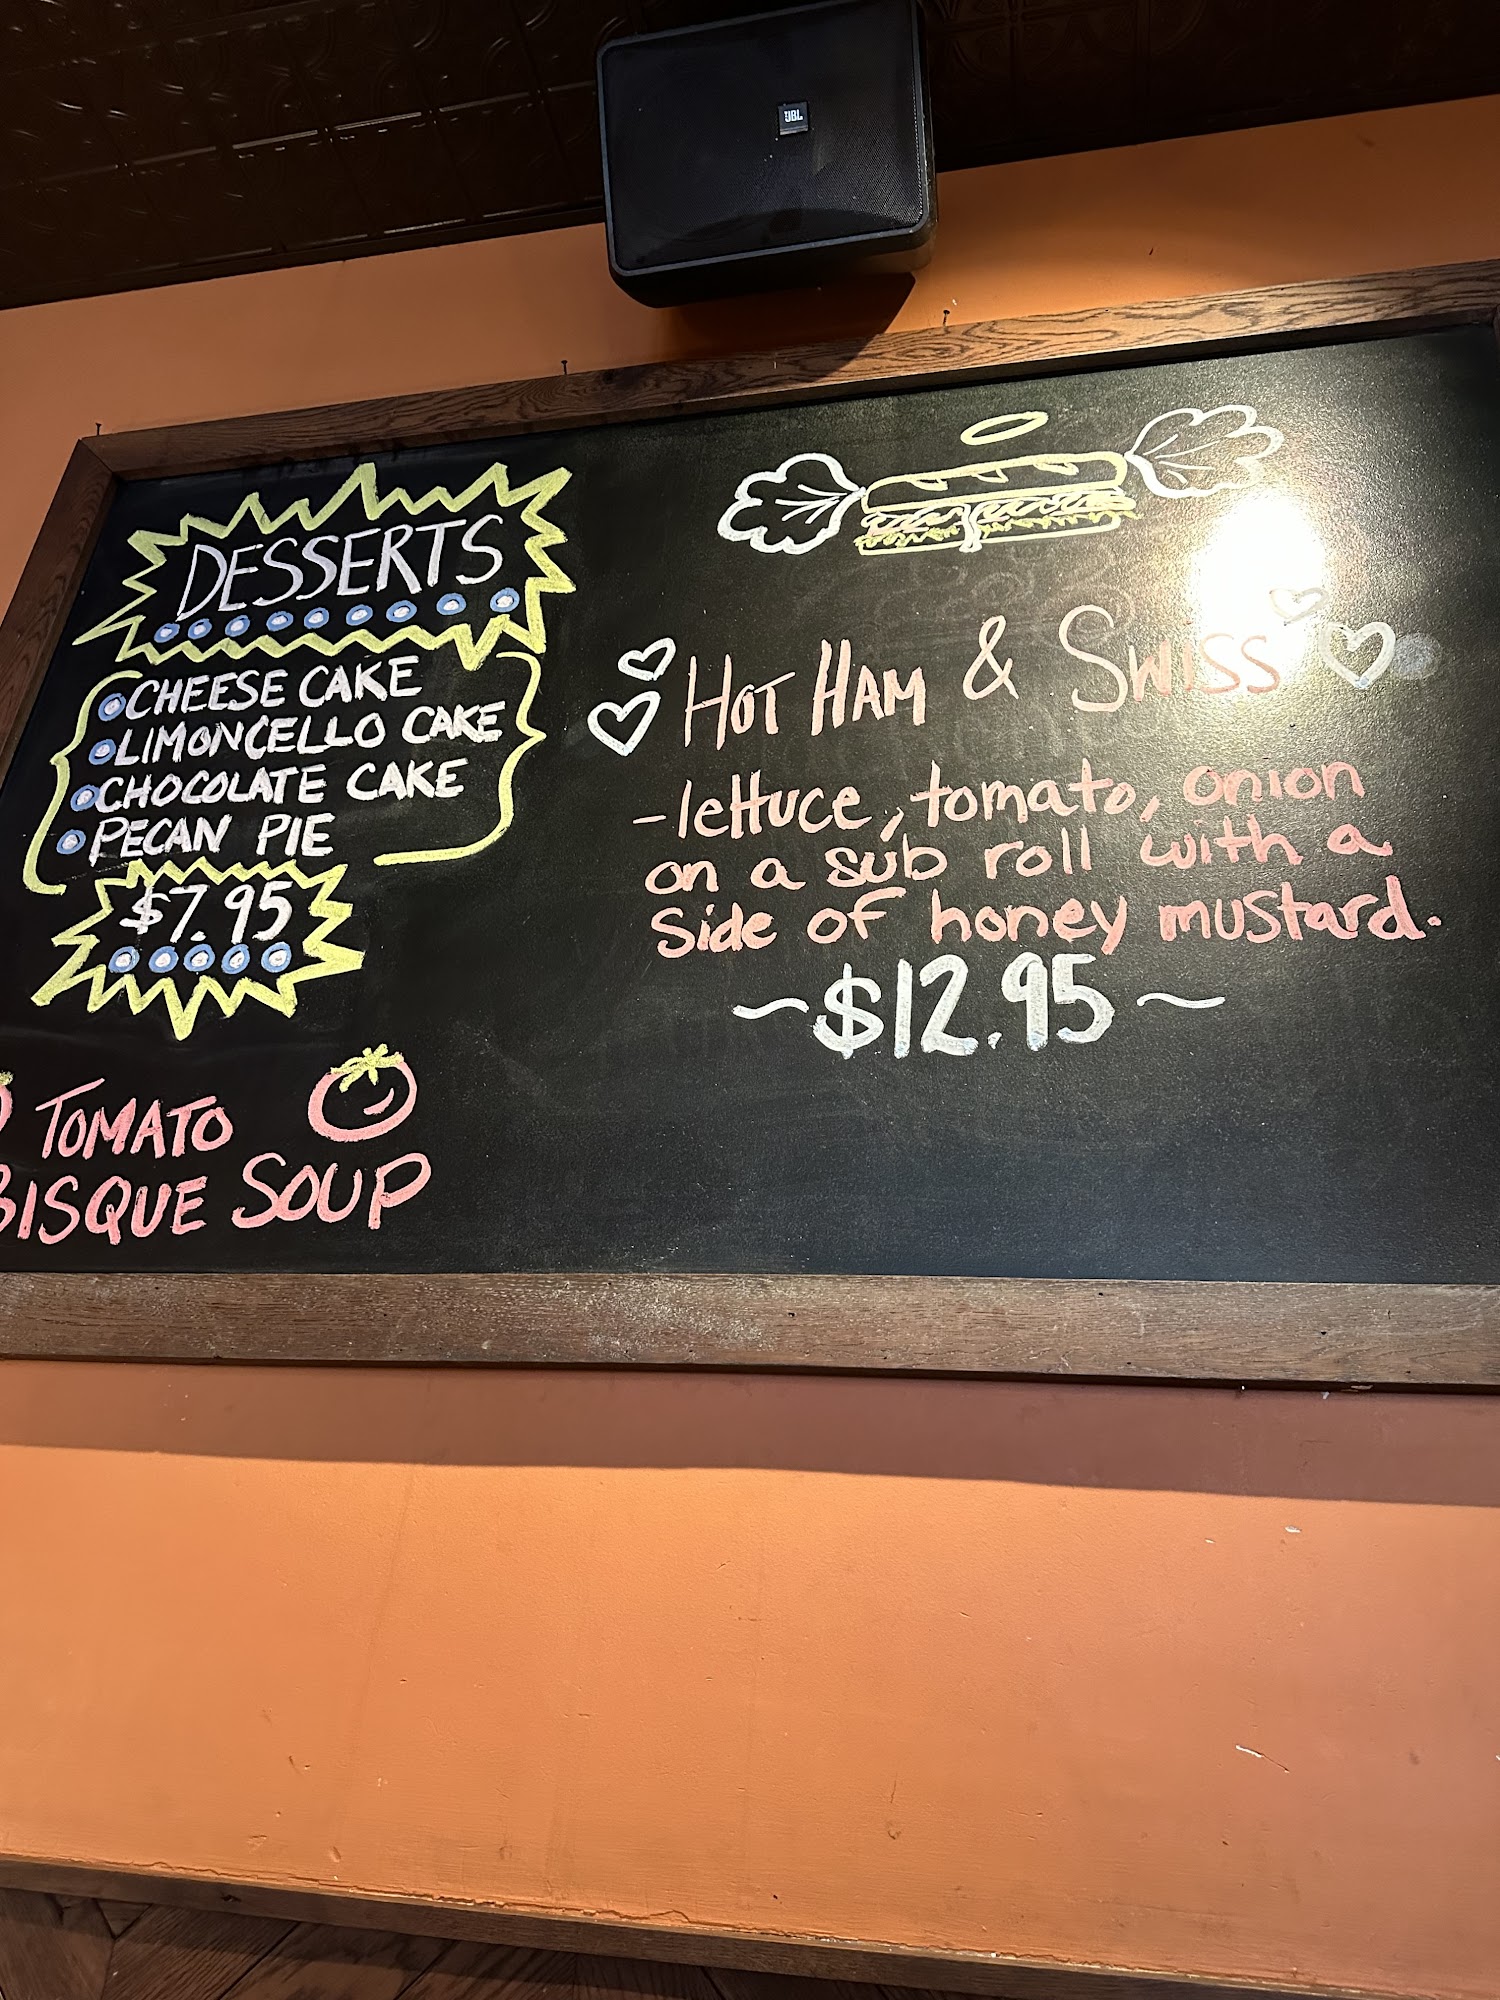 JBL
DESSERTS
CHEESE CAKE
LIMONCELLO CAKE
CHOCOLATE CAKE
PECAN PIE
$7.95
TOMATO
BISQUE SOUP
HOT HAM & SWISS
-lettuce, tomato, onion
on a sub roll with a
side of honey mustard.
~$12.95~